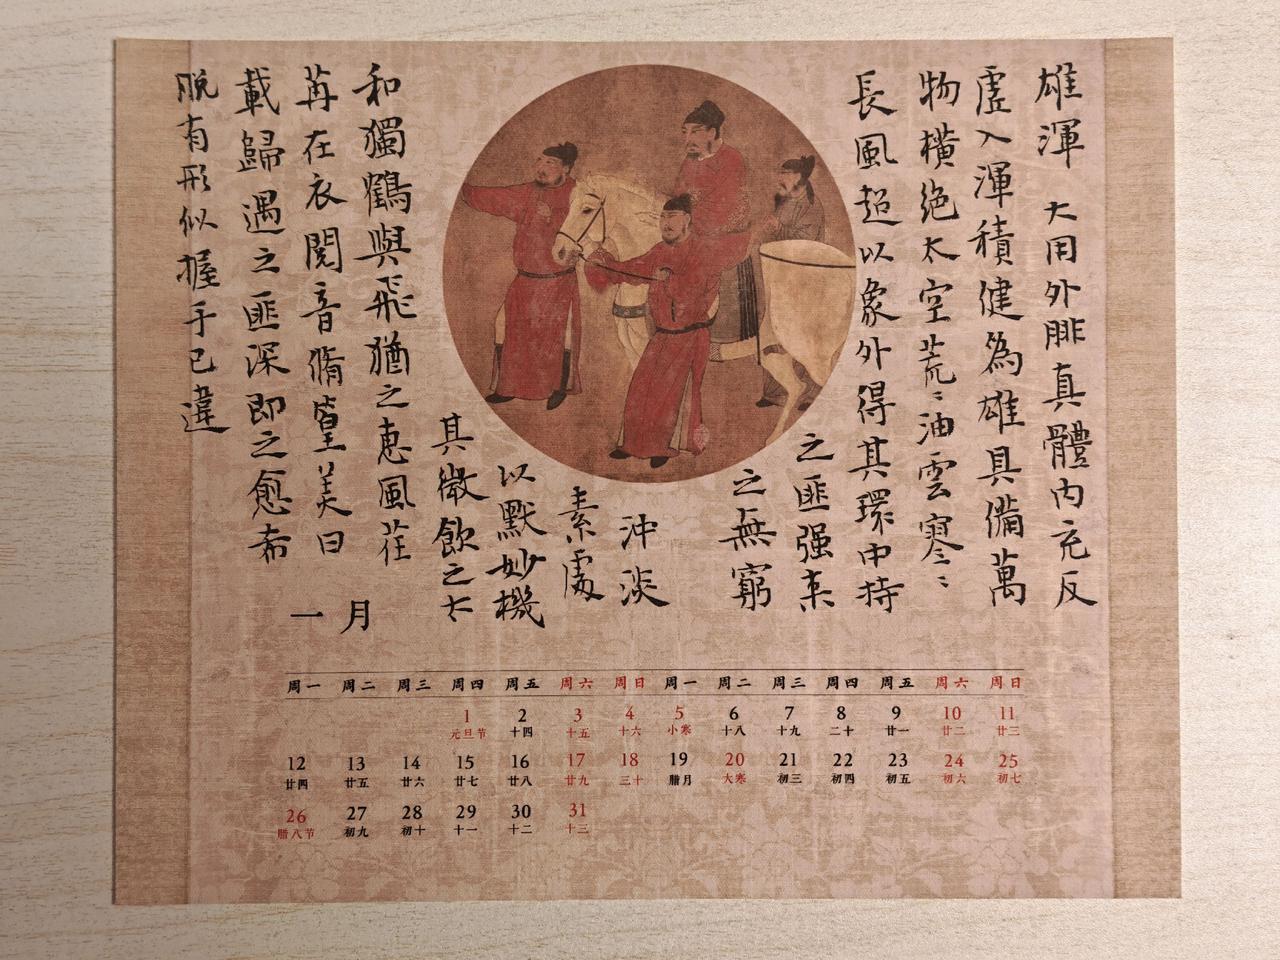 雄渾 大用外腓真體內充反
虛入渾積健為雄具備萬
物橫絕太空荒〻油雲寥〻
長風超以象外得其環中持
之匪强来
之無窮
沖淡
素處
以默妙機
其微飲之太
和獨鶴與飛猶之惠風荏
苒在衣閱音脩篁美曰
載歸遇之匪深即之愈希
脫有形似握手已違
一月
周一 周二 周三 周四 周五 周六 周日 周一 周二 周三 周四 周五 周六 周日
1 2 3 4 5 6 7 8 9 10 11
元旦节 十四 十五 十六 小寒 十八 十九 二十 廿一 廿二 廿三
12 13 14 15 16 17 18 19 20 21 22 23 24 25
廿四 廿五 廿六 廿七 廿八 廿九 三十 腊月 大寒 初三 初四 初五 初六 初七
26 27 28 29 30 31
腊八节 初九 初十 十一 十二 十三